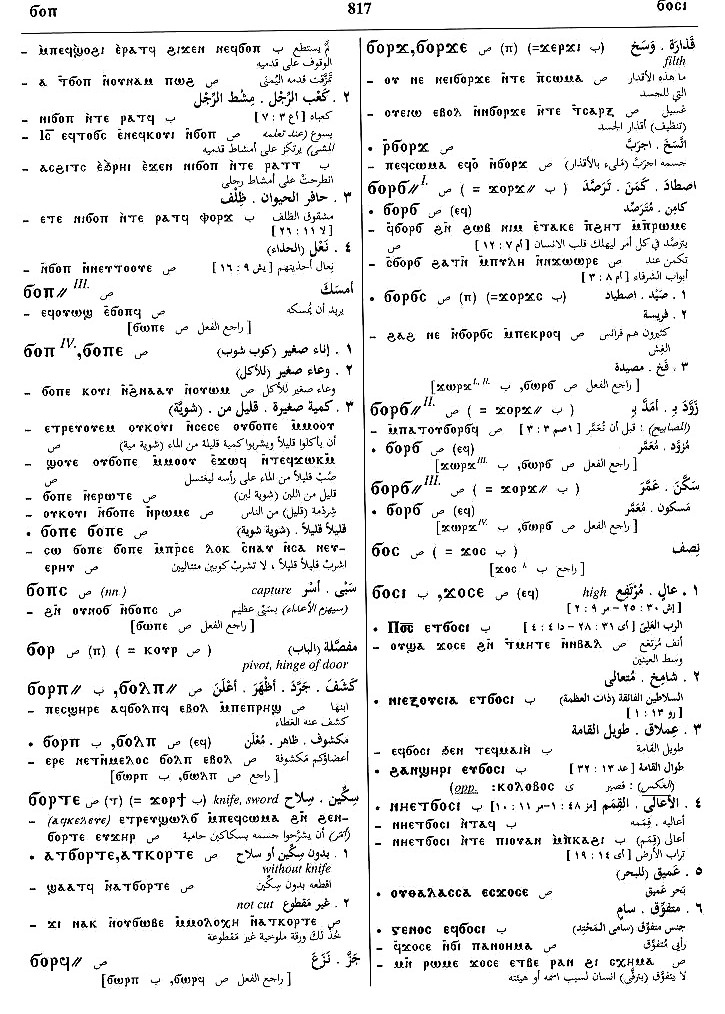 ϭⲟⲡ 817 ϭⲟⲥⲓ
– ⲙ̀ⲡⲉϥϣ̀ⲟϩⲓ ⲉ̀ⲣⲁⲧϥ ϩⲓϫⲉⲛ ⲛⲉϥϭⲟⲡ ب لَمْ يستطع
الوقوف على قدميه
– ⲁ ⲧ̄ϭⲟⲡ ⲛ̄ⲟⲩⲛⲁⲙ ⲡⲱϩ ص تمزَّقت قدمه اليُمنى
٢ . كَعْب الرِّجْل . مِشْط الرِّجْل
– ⲛⲓϭⲟⲡ ⲛ̀ⲧⲉ ⲣⲁⲧϥ ب كعباه [أع ٣ : ٧]
– ⲓ̅ⲥ̅ ⲉϥⲧⲟⲃⲥ ⲉⲛⲉϥⲕⲟⲩⲓ ⲛ̄ϭⲟⲡ ص يسوع (عند تعلمه
المشى) يرتكز على أمشاط قدميه
– ⲁⲥϩⲓⲧⲥ ⲉ̀ϧⲣⲏⲓ ⲉ̀ϫⲉⲛ ⲛⲓϭⲟⲡ ⲛ̀ⲧⲉ ⲣⲁⲧⲧ ب
انطرحتْ على أمشاط رجلى
٣ . حافر الحيوان . ظِلْف
– ⲉⲧⲉ ⲛⲓϭⲟⲡ ⲛ̀ⲧⲉ ⲣⲁⲧϥ ⲫⲟⲣϫ ب مشقوق الظلف
[لا ١١ : ٢٦]
٤ . نَعْل (الحذاء)
– ⲛ̄ϭⲟⲡ ⲛ̄ⲛⲉⲧⲟⲟⲧⲉ ص نِعال أحذيتهم [يش ٩ : ١٦]
ϭⲟⲡ⫽ III. أمسَكَ
– ⲉϥⲟⲩⲱϣ ⲉ̄ϭⲟⲡϥ ص يريد أن يُمسكه
[راجع الفعل ص ϭⲱⲡⲉ]
ϭⲟⲡ IV. ,ϭⲟⲡⲉ ص ١ . إناء صغير (كوب شوب)
٢ . وعاء صغير (للأكل)
– ϭⲟⲡⲉ ⲕⲟⲩⲓ ⲛ̄ϩⲛⲁⲁⲩ ⲛ̄ⲟⲩⲱⲙ ص وعاء صغير للأكل
٣ . كمية صغيرة . قليل من . (شويَّة)
– ⲉⲧⲣⲉⲩⲟⲩⲉⲙ ⲟⲩⲕⲟⲩⲓ ⲛ̄ⲥⲉⲥⲉ ⲟⲩϭⲟⲡⲉ ⲙ̄ⲙⲟⲟⲩ
ص أن يأكلوا قليلاً ويشربوا كمية قليلة من الماء (شوية مية)
– ϣⲟⲩⲉ ⲟⲩϭⲟⲡⲉ ⲙ̄ⲙⲟⲟⲩ ⲉϫⲱϥ ⲛ̄ⲧⲉϥϫⲱⲕⲙ̄
ص صُبْ قليلاً من الماء على رأسه ليغتسل
– ϭⲟⲡⲉ ⲛ̄ⲉⲣⲱⲧⲉ ص قليل من اللبن (شوية لبن)
– ⲟⲩⲕⲟⲩⲓ ⲛ̄ϭⲟⲡⲉ ⲛ̄ⲣⲱⲙⲉ ص شِرذمة (قليل) من الناس
• ϭⲟⲡⲉ ϭⲟⲡⲉ ص قليلاً قليلاً . (شوية شوية)
– ⲥⲱ ϭⲟⲡⲉ ϭⲟⲡⲉ ⲙ̄ⲡⲣ̄ⲥⲉ ⲗⲟⲕ ⲥⲛⲁⲩ ⲛ̄ⲥⲁ ⲛⲉⲩ-
ⲉⲣⲏⲩ ص اشربْ قليلاً قليلاً ، لا تشربْ كوبين متتاليين
ϭⲟⲡⲥ ص (nn) capture سَبْى . أَسْر
– ϩⲛ̄ ⲟⲩⲛⲟϭ ⲛ̄ϭⲟⲡⲥ ص (سيهزم الأعداء) بسَبْى عظيم
[راجع الفعل ص ϭⲱⲡⲉ]
ϭⲟⲣ ص (ⲡ) ( = ⲕⲟⲩⲣ ص ) مفصّلة (الباب)
pivot, hinge of door
ϭⲟⲣⲡ⫽ ص ,ϭⲟⲗⲡ⫽ ب كَشَفَ . جَرَّدَ . أظْهَرَ . أعْلَنَ
– ⲡⲉⲥϣⲏⲣⲉ ⲁϥϭⲟⲗⲡϥ ⲉⲃⲟⲗ ⲙ̄ⲡⲉⲡⲣⲏϣ ص ابنها
كشف عنه الغطاء
• ϭⲟⲣⲡ ب ,ϭⲟⲗⲡ ص (eq) مكشوف . ظاهر . مُعْلَن
– ⲉⲣⲉ ⲛⲉⲧⲛ̄ⲙⲉⲗⲟⲥ ϭⲟⲗⲡ ⲉⲃⲟⲗ ص أعضاؤكم مكشوفة
[راجع ص ϭⲱⲗⲡ, ب ϭⲱⲣⲡ]
ϭⲟⲣⲧⲉ ص (ⲧ) (= ϫⲟⲣϯ ب) knife, sword سِكِّين . سِلاح
– (ⲁϥⲕⲉⲗⲉⲩⲉ) ⲉⲧⲣⲉⲩϣⲱⲗϭ ⲙ̄ⲡⲉϥⲥⲱⲙⲁ ϩⲛ̄ ϩⲉⲛ-
ϭⲟⲣⲧⲉ ⲉⲩϫⲏⲣ ص (أَمَرَ) أن يشرِّحوا جسمه بسكاكين حامية
• ⲁⲧϭⲟⲣⲧⲉ,ⲁⲧⲕⲟⲣⲧⲉ ص ١ . بدون سكِّين أو سلاح
without knife
– ϣⲁⲁⲧϥ ⲛ̄ⲁⲧϭⲟⲣⲧⲉ ص اقطعه بدون سكِّين
not cut ٢ . غير مقطوع
– ϫⲓ ⲛⲁⲕ ⲛ̄ⲟⲩϭⲱⲃⲉ ⲙ̄ⲙⲟⲗⲟⲭⲏ ⲛ̄ⲁⲧⲕⲟⲣⲧⲉ ص
خُذْ لكَ ورقة ملوخية غير مقطوعة
ϭⲟⲣϥ⫽ ص جَزَّ . نَزَعَ
[راجع الفعل ص ϭⲱⲣϥ, ب ϭⲱⲣⲡ]
ϭⲟⲣϫ,ϭⲟⲣϫⲉ ص (ⲡ) (=ϫⲉⲣϫⲓ ب) قَذارَة . وَسَخ
filth
– ⲟⲩ ⲛⲉ ⲛⲉⲓϭⲟⲣϫⲉ ⲛ̄ⲧⲉ ⲡⲥⲱⲙⲁ ص ما هذه الأقذار
التي للجسد
– ⲟⲩⲉⲓⲱ ⲉⲃⲟⲗ ⲛ̄ⲛϭⲟⲣϫⲉ ⲛ̄ⲧⲉ ⲧⲥⲁⲣⲝ ص غسيل
(تنظيف) أقذار الجسد
• ⲣ̄ϭⲟⲣϫ ص اتَّسَخَ . اجرَبَّ
– ⲡⲉϥⲥⲱⲙⲁ ⲉϥⲟ̄ ⲛ̄ϭⲟⲣϫ ص جسمه اجرَبَّ (مُلىء بالأقذار)
ϭⲟⲣϭ⫽ I. ص ( = ϫⲟⲣϫ⫽ ب ) اصطادَ . كَمَنَ . تَرَصَّدَ
• ϭⲟⲣϭ ص (eq) كامِن . مُتَرَصِّد
– ϥϭⲟⲣϭ ϩⲛ̄ ϩⲱⲃ ⲛⲓⲙ ⲉⲧⲁⲕⲉ ⲡϩⲏⲧ ⲙ̄ⲡⲣⲱⲙⲉ
ص يترصّد في كل أمر ليهلك قلب الانسان [أم ٧ : ١٢]
– ⲥϭⲟⲣϭ ϩⲁⲧⲛ̄ ⲙ̄ⲡⲩⲗⲏ ⲛ̄ⲛϫⲱⲱⲣⲉ ص تكمن عند
أبواب الشرفاء [أم ٨ : ٣]
• ϭⲟⲣϭⲥ ص (ⲡ) (=ϫⲟⲣϫⲥ ب) ١ . صَيْد . اصطياد
٢ . فريسة
– ϩⲁϩ ⲛⲉ ⲛ̄ϭⲟⲣϭⲥ ⲙ̄ⲡⲉⲕⲣⲟϥ ص كثيرون هم فرائس
الغش
٣ . فَخ . مصيدة
[راجع الفعل ص ϭⲱⲣϭ, ب ϫⲱⲣϫ I. II.]
ϭⲟⲣϭ⫽ II. ص ( = ϫⲟⲣϫ⫽ ب ) زَوَّدَ بِـ . أَمَدَّ بِـ
– ⲙ̄ⲡⲁⲧⲟⲩϭⲟⲣϭϥ ص (المصابيح) : قبل أن تُعَمَّر [١صم ٣ : ٣]
• ϭⲟⲣϭ ص (eq) مُزوَّد . مُعَمَّر
[راجع الفعل ص ϭⲱⲣϭ, ب ϫⲱⲣϫ III.]
ϭⲟⲣϭ⫽ III. ص ( = ϫⲟⲣϫ⫽ ب ) سَكَّنَ . عَمَّرَ
• ϭⲟⲣϭ ص (eq) مَسكون . مُعَمَّر
[راجع الفعل ص ϭⲱⲣϭ, ب ϫⲱⲣϫ IV.]
ϭⲟⲥ ص ( = ϫⲟⲥ ب ) نِصف
[راجع ب ϫⲟⲥ]
ϭⲟⲥⲓ ب ,ϫⲟⲥⲉ ص (eq) high ١ . عالٍ . مُرْتَفِع
[إش ٣٠ : ٢٥ – مر ٩ : ٢]
• Ⲡ̅ⲟ̅ⲥ̅ ⲉⲧϭⲟⲥⲓ ب الرب العَلِىّ [أى ٣١ : ٢٨ – دا ٤ : ٤]
– ⲟⲩϣⲁ ϫⲟⲥⲉ ϩⲛ̄ ⲧⲙⲏⲧⲉ ⲛ̄ⲛⲃⲁⲗ ص أنف مُرتَفِع
وسط العينين
٢ . شامِخ . مُتعالى
• ⲛⲓⲉⲝⲟⲩⲥⲓⲁ ⲉⲧϭⲟⲥⲓ ب السلاطين الفائقة (ذات العظمة)
[رو ١٣ : ١]
٣ . عِملاق . طويل القامة
– ⲉϥϭⲟⲥⲓ ϧⲉⲛ ⲧⲉϥⲙⲁⲓⲏ ب طويل القامة
• ϩⲁⲛϣⲏⲣⲓ ⲉⲩϭⲟⲥⲓ ب طوال القامة [عد ١٣ : ٣٢]
(opp. :ⲕⲟⲗⲟⲃⲟⲥ ى العكس) : قصير
٤ . الأعالى . القِمَم [مز ١٤٨ : ١–مر ١١ : ١٠] ب ⲛⲏⲉⲧϭⲟⲥⲓ •
– ⲛⲏⲉⲧϭⲟⲥⲓ ⲛ̀ⲧⲁϥ ب أعاليه . قِمَمه
– ⲛⲏⲉⲧϭⲟⲥⲓ ⲛ̀ⲧⲉ ⲡⲓⲟⲩⲁⲛ ⲙ̀ⲡⲕⲁϩⲓ ب أعالى (قِمَم)
تراب الأرض [أى ١٤ : ١٩]
٥ . عَميق (للبحر)
• ⲟⲩⲑⲁⲗⲁⲥⲥⲁ ⲉⲥϫⲟⲥⲉ ص بَحر عَميق
٦ . متفوِّق . سامٍ
• ⲅⲉⲛⲟⲥ ⲉϥϭⲟⲥⲓ ب جنس متفوِّق (سامى المَحْتِد)
– ϥϫⲟⲥⲉ ⲛ̄ϭⲓ ⲡⲁⲛⲟⲏⲙⲁ ص رأيى مُتفوِّق
– ⲙⲛ̄ ⲣⲱⲙⲉ ϫⲟⲥⲉ ⲉⲧⲃⲉ ⲣⲁⲛ ϩⲓ ⲥⲭⲏⲙⲁ ص
لا يتفوَّق (يترقَّى) انسان لسبب اسمه أو هيئته